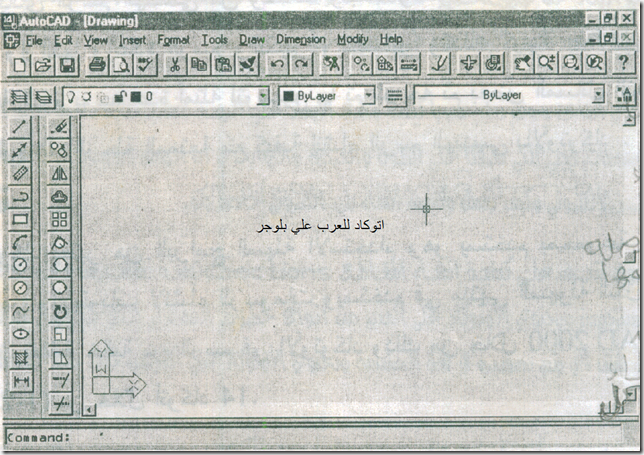 AutoCAD - [Drawing]
File Edit View Insert Format Tools Draw Dimension Modify Help
0 ByLayer ByLayer
اتوكاد للعرب علي بلوجر
Y
W
X
Command: